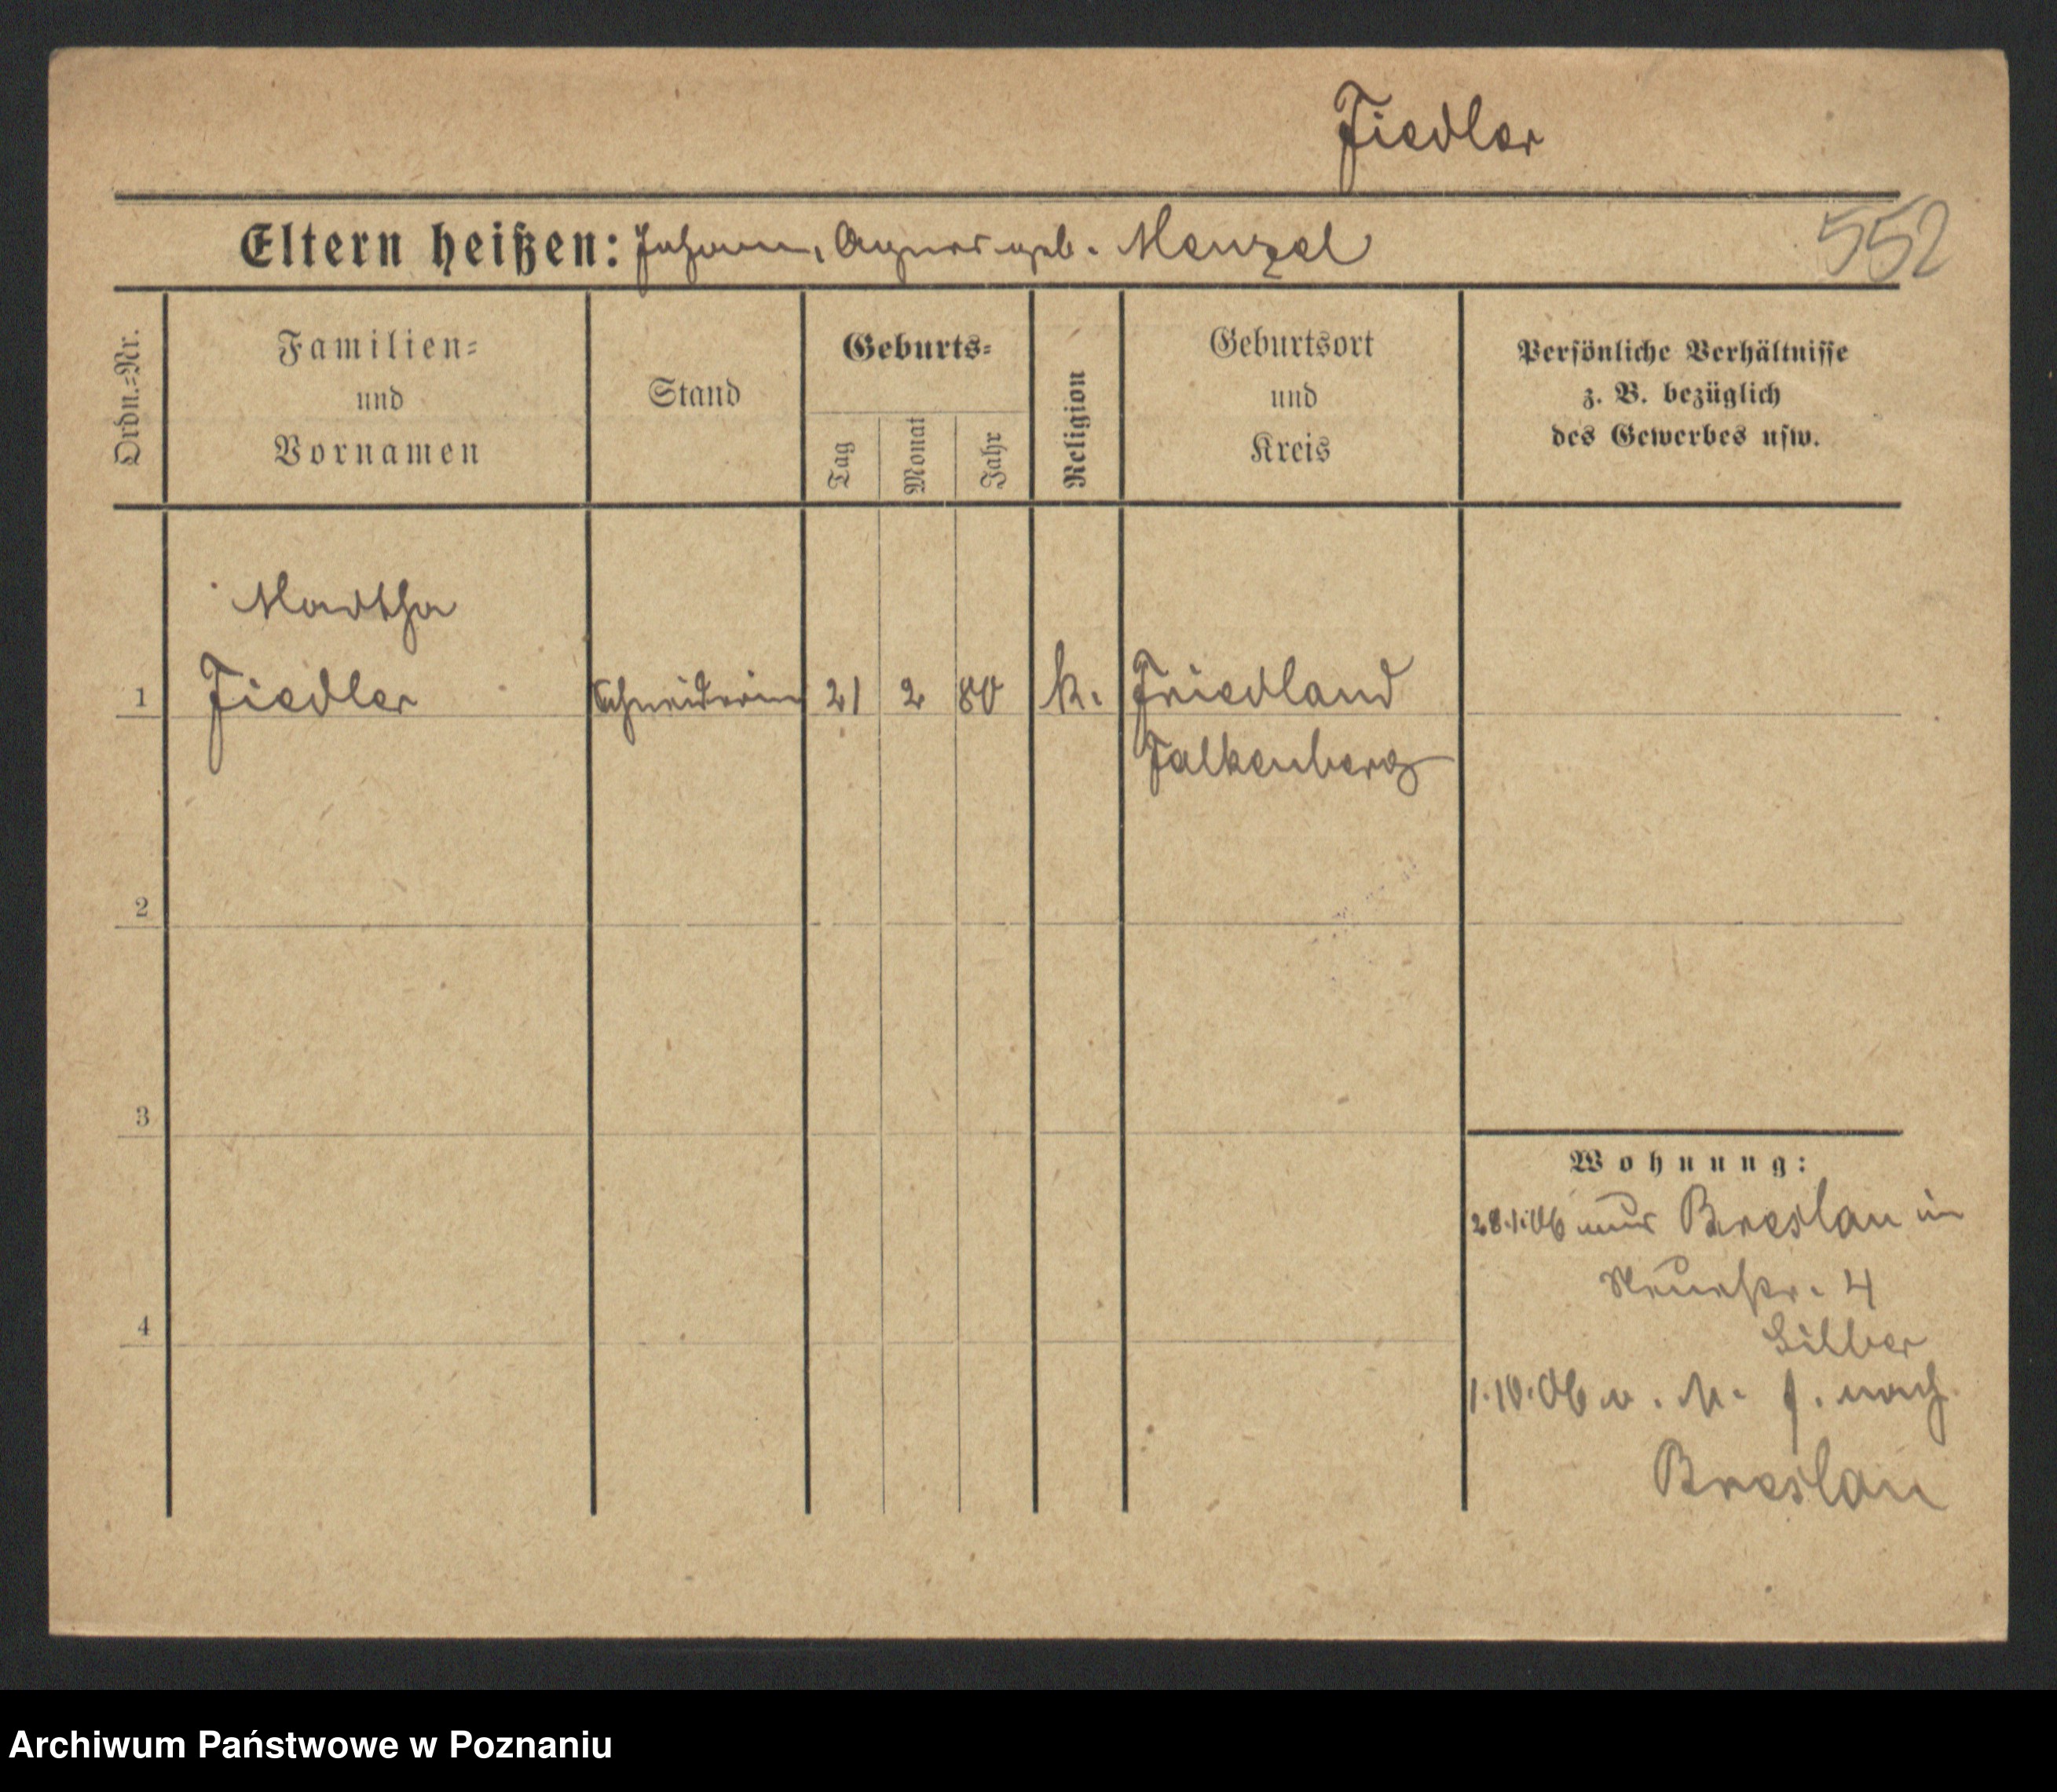 Fiedler
Eltern heißen: Johann, Agnes geb. Menzel
552
Ordn.=Nr.
Familien=
und
Vornamen
Stand
Geburts=
Tag
Monat
Jahr
Religion
Geburtsort
und
Kreis
Persönliche Verhältnisse
z. B. bezüglich
des Gewerbes usw.
Martha
1 Fiedler Schneiderin 21 2 80 k. Friedland
Falkenberg
2
3
4
Wohnung:
28.1.06 aus Breslau in
Neuestr. 4
Silber
1.10.06 v. N. f. nach
Breslau
Archiwum Państwowe w Poznaniu